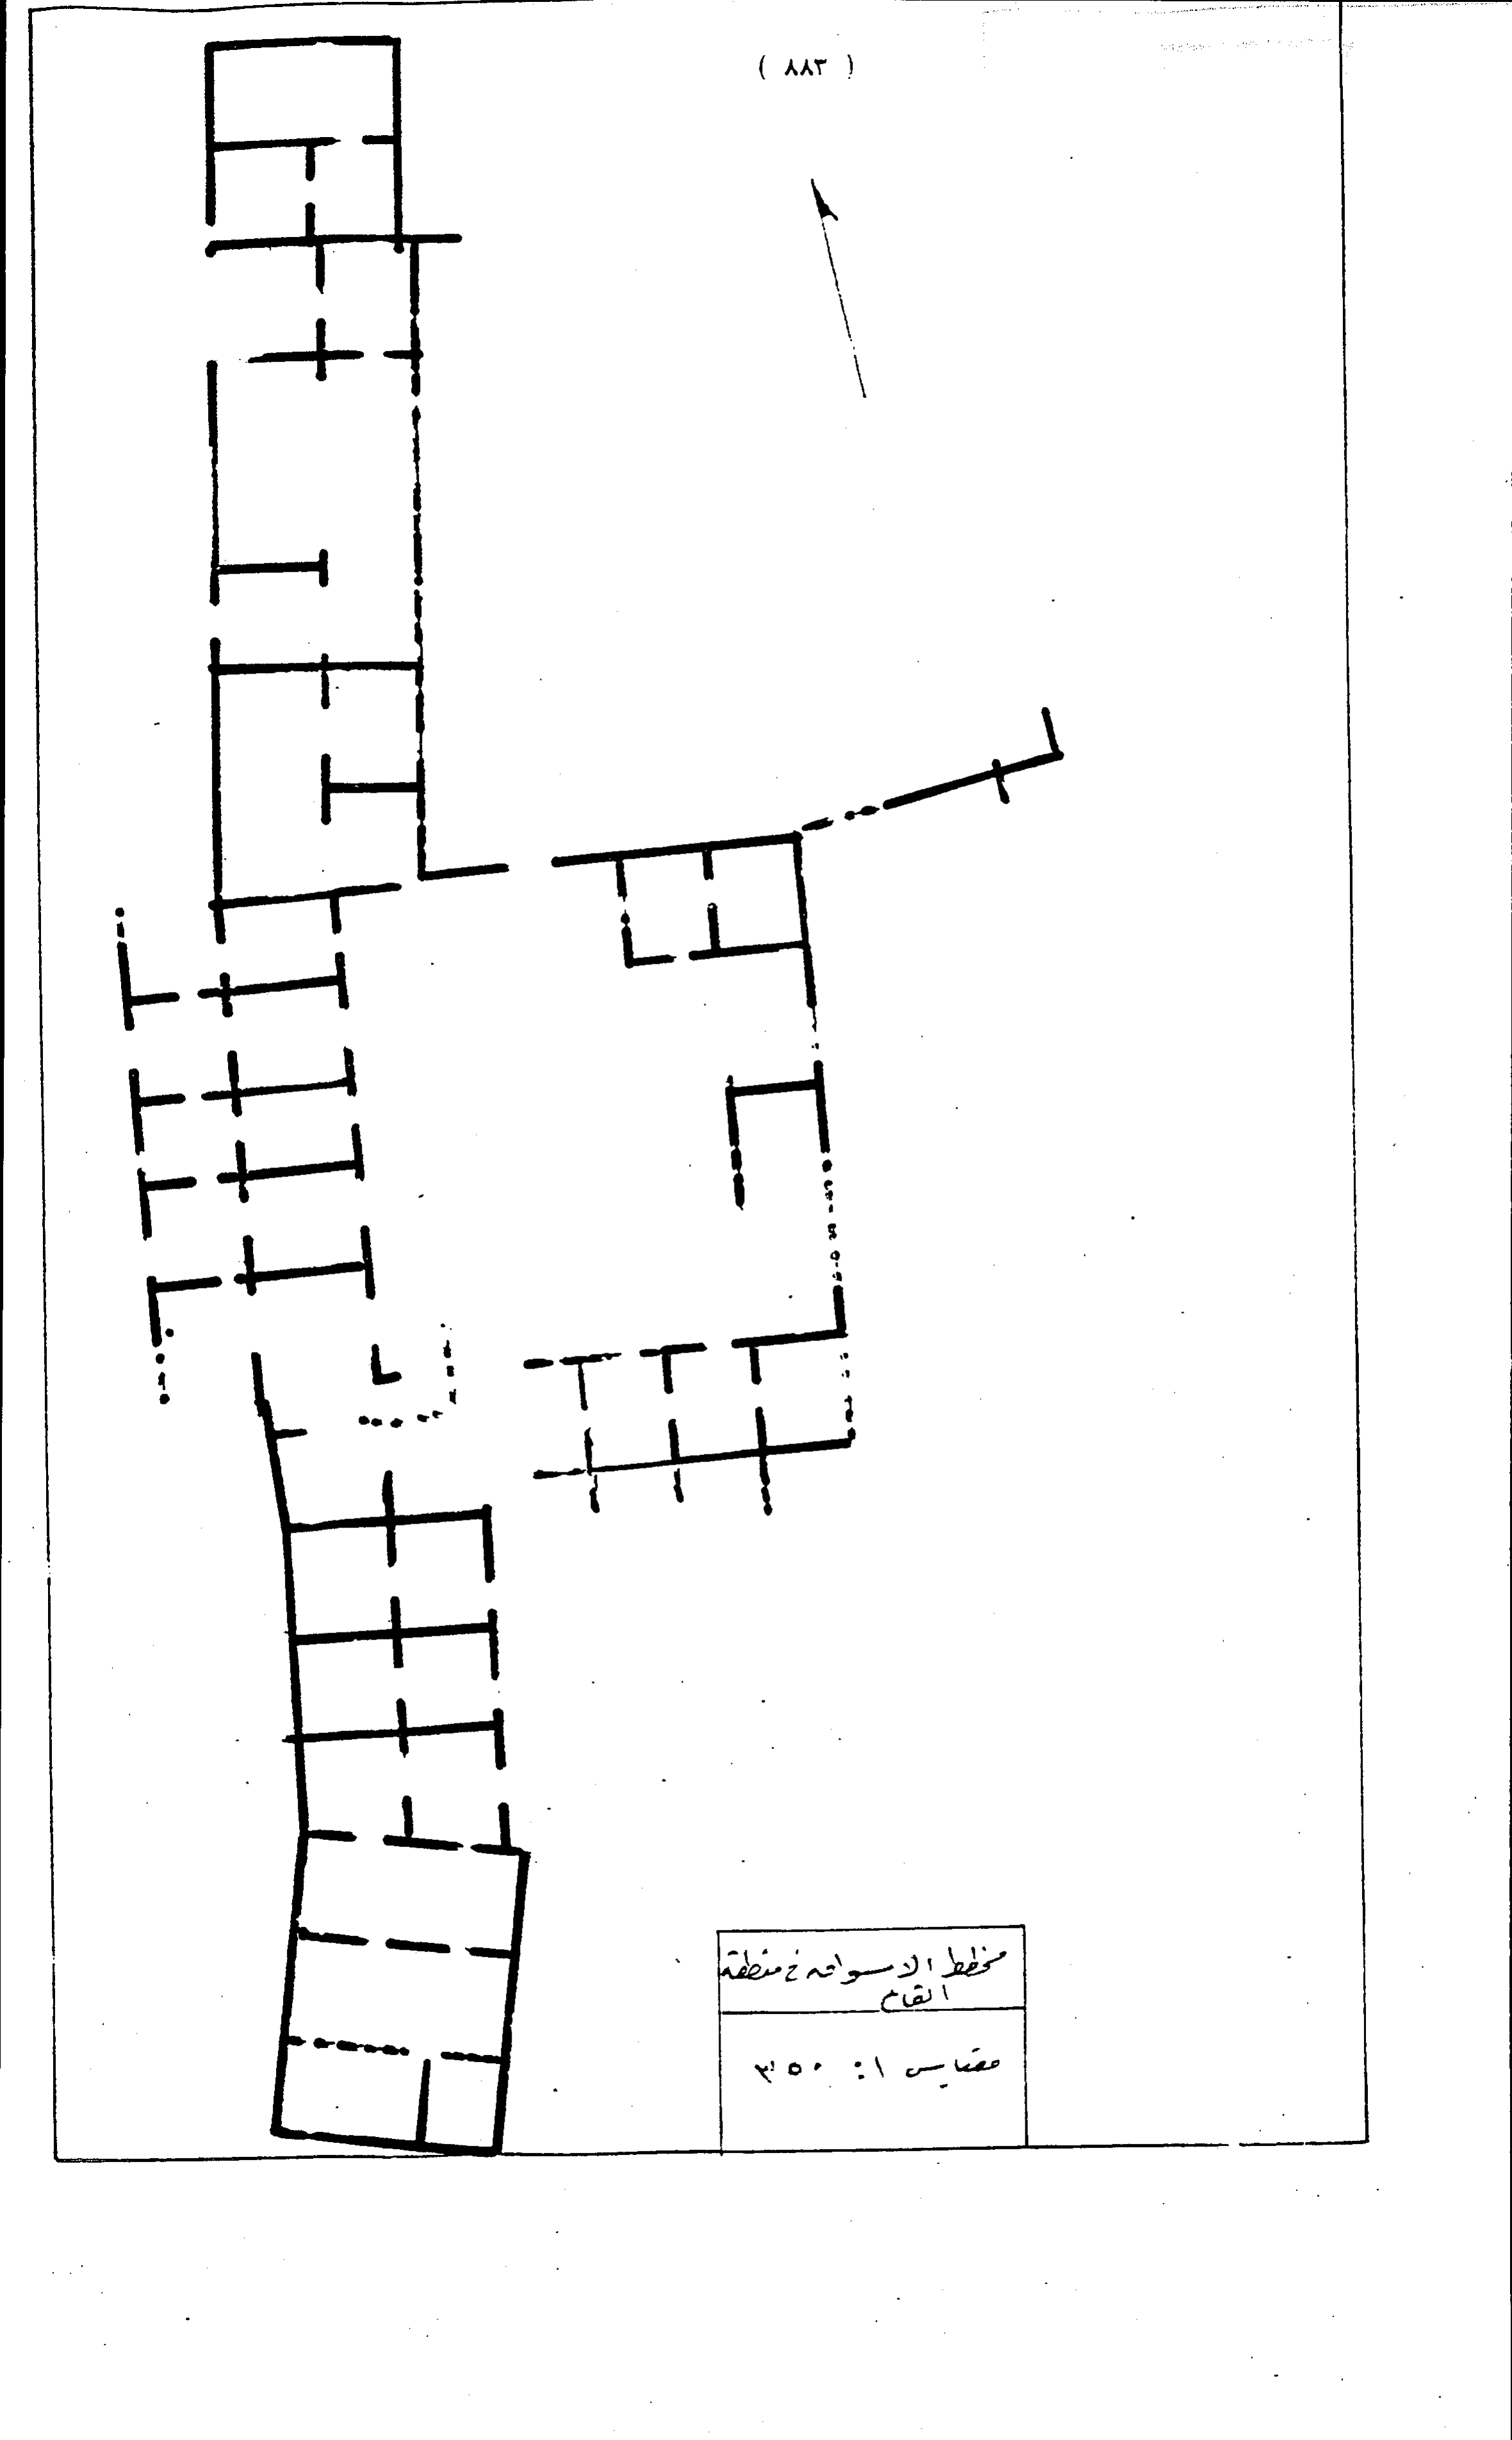 ( ٨٨٣ )
مخطط الاسواق في منطقة
القاع
مقياس ١: ٣٥٠